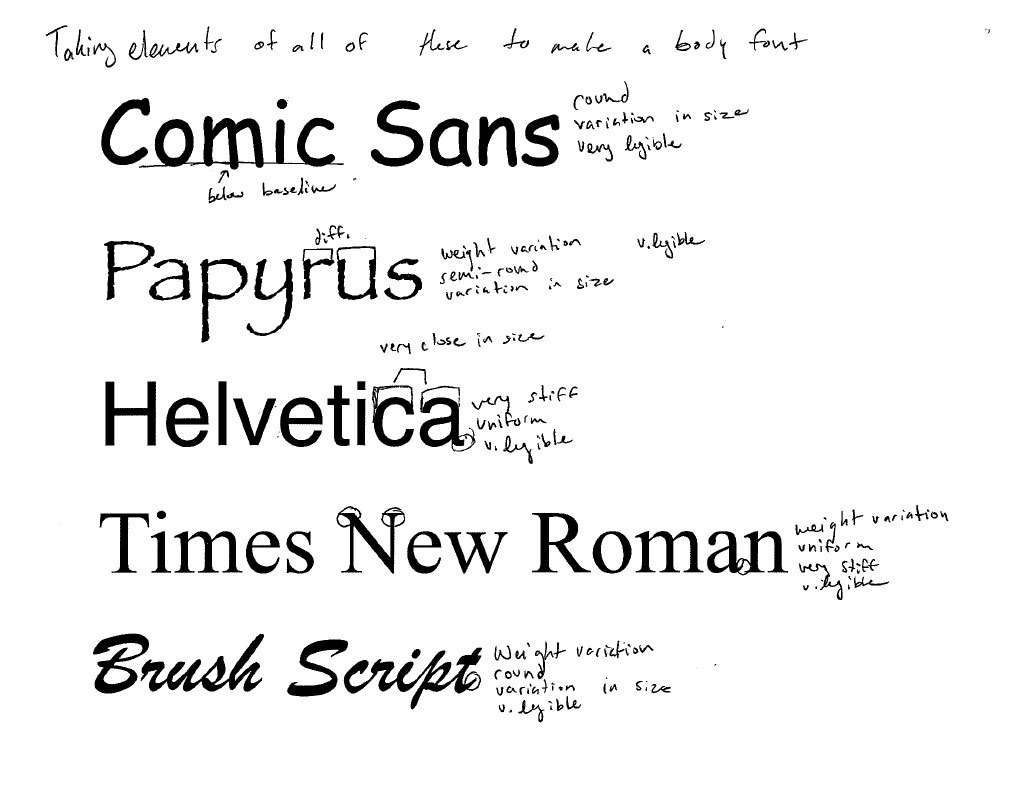 Taking elements of all of these to make a body font
Comic Sans
round
variation in size
very lyible
below baseline
diff.
Papyrus
weight variation
v.lyible
semi-round
variation in size
very close in size
Helvetica
very stiff
uniform
v.lyible
Times New Roman
weight variation
uniform
very stiff
v.lyible
Brush Script
Weight variation
round
variation in size
v.lyible